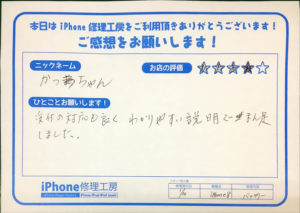 本日は iPhone 修理工房をご利用頂きありがとうございます！
ご感想をお願いします！
ニックネーム
お店の評価
かつ ちゃん
ひとことお願いします！
受付の対応も良く わかりやすい説明で 満足
しました。
iPhone修理工房
iPhone8
バッテリー